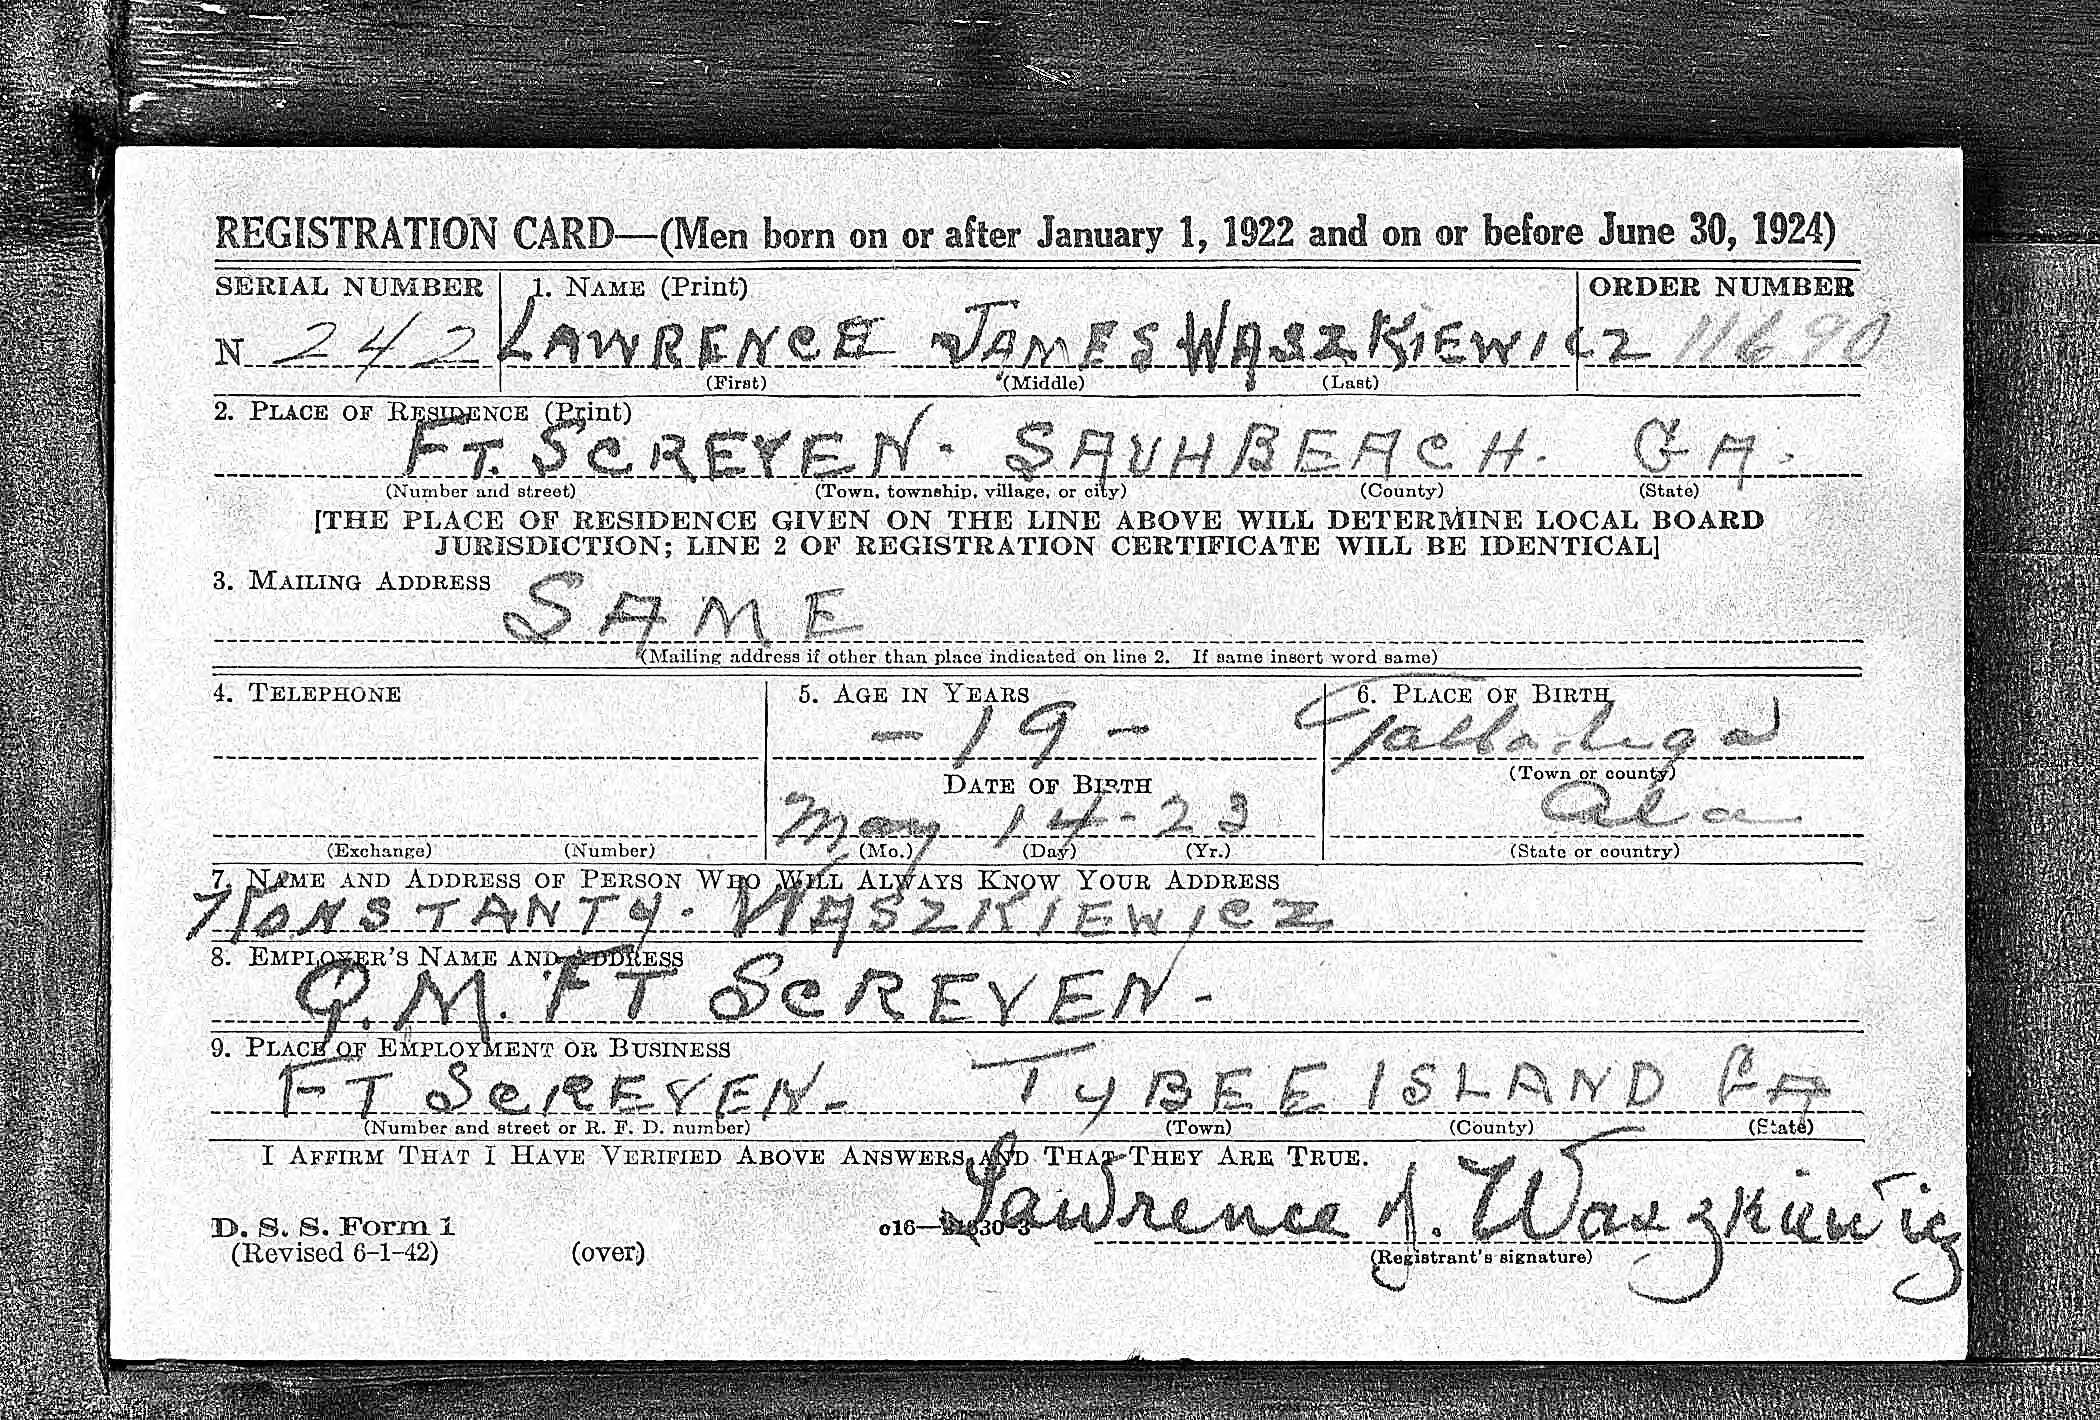 REGISTRATION CARD—(Men born on or after January 1, 1922 and on or before June 30, 1924)
SERIAL NUMBER 1. NAME (Print) ORDER NUMBER
N 242 LAWRENCE JAMES WASZKIEWICZ 11690
(First) (Middle) (Last)
2. PLACE OF RESIDENCE (Print)
FT. SCREVEN. SAVH BEACH. GA.
(Number and street) (Town, township, village, or city) (County) (State)
[THE PLACE OF RESIDENCE GIVEN ON THE LINE ABOVE WILL DETERMINE LOCAL BOARD
JURISDICTION; LINE 2 OF REGISTRATION CERTIFICATE WILL BE IDENTICAL]
3. MAILING ADDRESS
SAME
(Mailing address if other than place indicated on line 2. If same insert word same)
4. TELEPHONE 5. AGE IN YEARS 6. PLACE OF BIRTH
- 19 - Talladega
DATE OF BIRTH (Town or county)
May 14-23 Ala
(Exchange) (Number) (Mo.) (Day) (Yr.) (State or country)
7. NAME AND ADDRESS OF PERSON WHO WILL ALWAYS KNOW YOUR ADDRESS
KONSTANTY. WASZKIEWICZ
8. EMPLOYER'S NAME AND ADDRESS
Q.M. FT SCREVEN-
9. PLACE OF EMPLOYMENT OR BUSINESS
FT SCREVEN- TYBEE ISLAND GA
(Number and street or R. F. D. number) (Town) (County) (State)
I AFFIRM THAT I HAVE VERIFIED ABOVE ANSWERS AND THAT THEY ARE TRUE.
Lawrence J. Waszkiewicz
D. S. S. Form 1
(Revised 6-1-42) (over) (Registrant's signature)